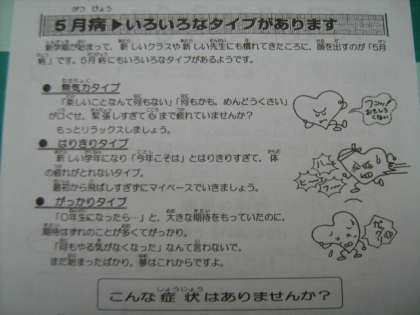 5月病▶いろいろなタイプがあります
新学期が始まって、新しいクラスや新しい先生にも慣れてきたころに、顔を出すのが「5月
病」です。5月病にもいろいろなタイプがあるようです。
● 無気力タイプ
「楽しいことなんて何もない」「何もかも、めんどうくさい」
が口ぐせ、緊張しすぎて心まで疲れていませんか？
もっとリラックスしましょう。
● はりきりタイプ
新しい学年になり「今年こそは」とはりきりすぎて、体
の疲れがとれないタイプ。
最初から飛ばしすぎずにマイペースでいきましょう。
● がっかりタイプ
「○年生になったら…」と、大きな期待をもっていたのに、
期待はずれのことが多くてがっかり。
「何もやる気がなくなった」なんて言わないで、
まだ始まったばかり、夢はこれからですよ。
こんな症状はありませんか？